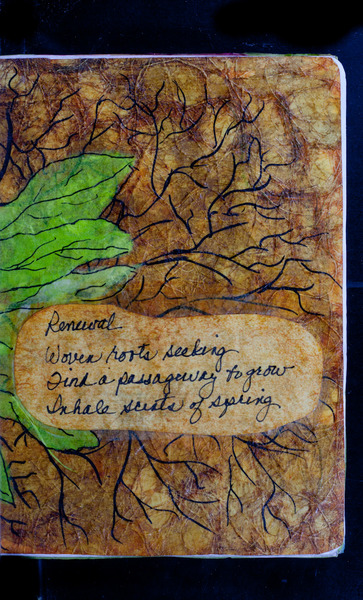 Renewal
Woven roots seeking
Find a passageway to grow
Inhale scents of spring